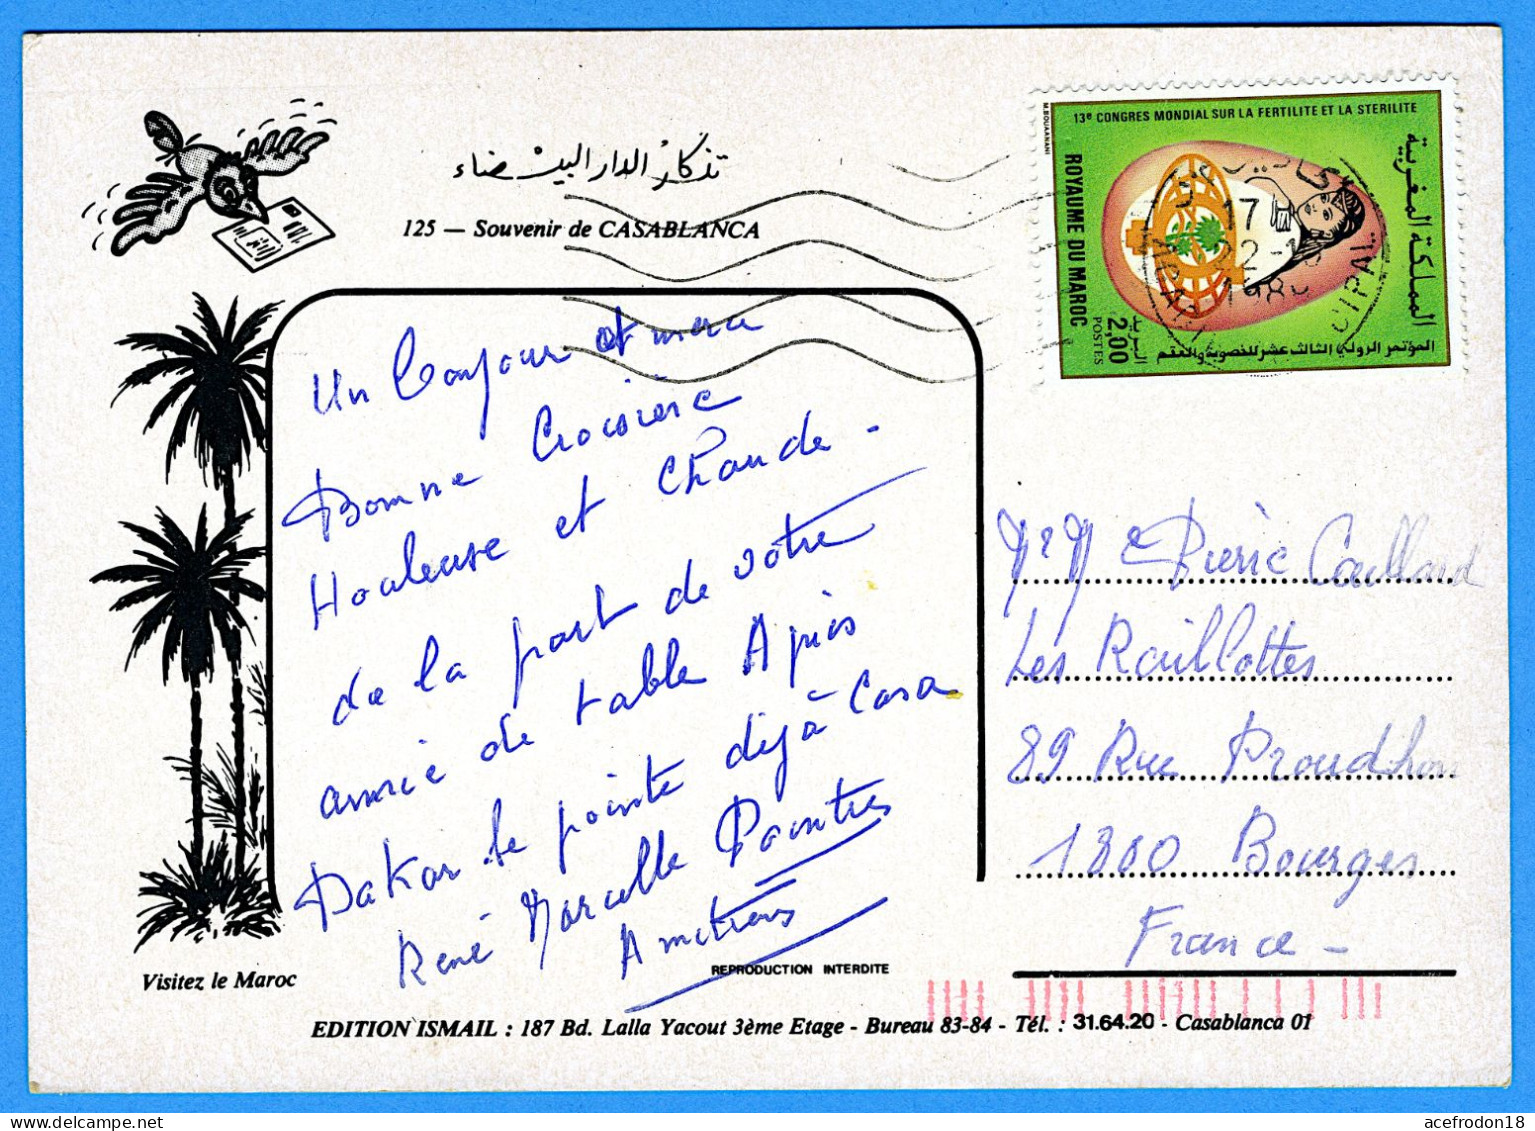 تذكار الدار البيضاء
125 — Souvenir de CASABLANCA
13e CONGRES MONDIAL SUR LA FERTILITE ET LA STERILITE
M. BOUAANANI
ROYAUME DU MAROC
المملكة المغربية
2,00
POSTES
البريد
المؤتمر الدولي الثالث عشر للخصوبة والعقم
17
22 -
198
CIPAL
Un Bonjour et
Bonne Croisière
Houleuse et Chaude -
de la part de votre
amie de table Apris
Dakar le pointe déjà Casa
René Marcelle
Amitiés
Mr M Pierre Caillard
Les Raillottes
89 Rue Proudhon
1800 Bourges
France -
Visitez le Maroc
REPRODUCTION INTERDITE
EDITION ISMAIL : 187 Bd. Lalla Yacout 3ème Etage - Bureau 83-84 - Tél. : 31.64.20 - Casablanca 01
acefrodon18